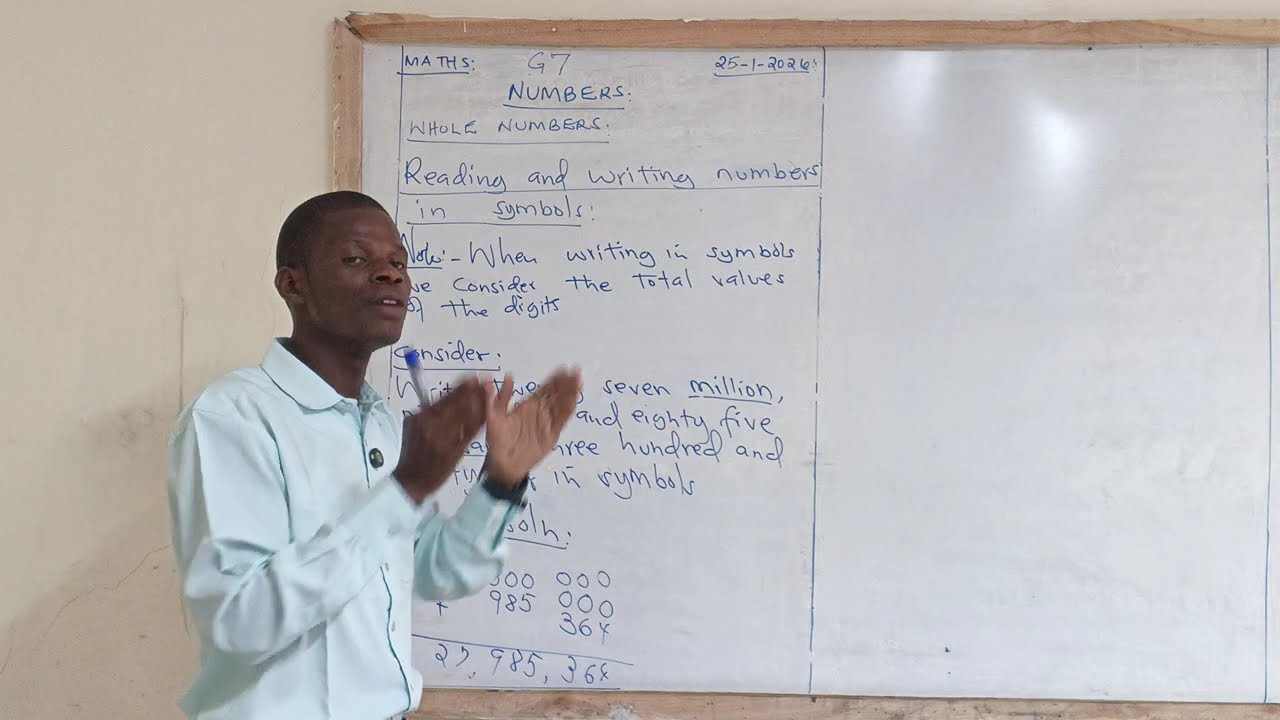 MATHS: G7 25-1-2026
NUMBERS:
WHOLE NUMBERS:
Reading and writing numbers
in symbols:
Note:- When writing in symbols
we consider the total values
of the digits
Consider:
seven million,
and eighty five
three hundred and
in symbols
soln:
000 000
+ 985 000
364
27,985,364